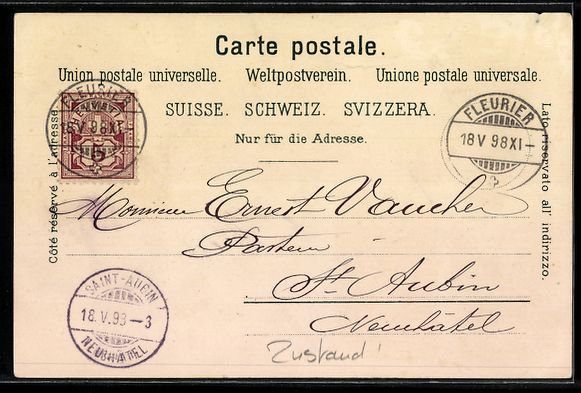 Carte postale.
Union postale universelle. Weltpostverein. Unione postale universale.
SUISSE. SCHWEIZ. SVIZZERA.
Nur für die Adresse.
Côté réservé à l'adresse.
Lato riservato all' indirizzo.
FLEURIER
18 V 98 XI
HELVETIA
5
FLEURIER
18 V 98 XI-
Monsieur Ernest Vaucher
Pasteur
St. Aubin
Neuchâtel
SAINT-AUBIN
18.V.98-3
NEUCHÂTEL
Zustand!